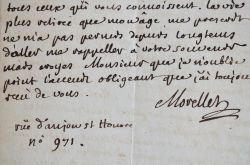 tous ceux qui vous connoissent. la vie
plus retirée que mon âge me prescrit
ne m'a pas permis depuis longtems
d'aller me rappeller à votre souvenir
mais croyés Monsieur que je n'oublie
point l'accueil obligeant que j'ai toujours
reçu de vous.
Morellet
rüe d'anjou st honoré
no 971.